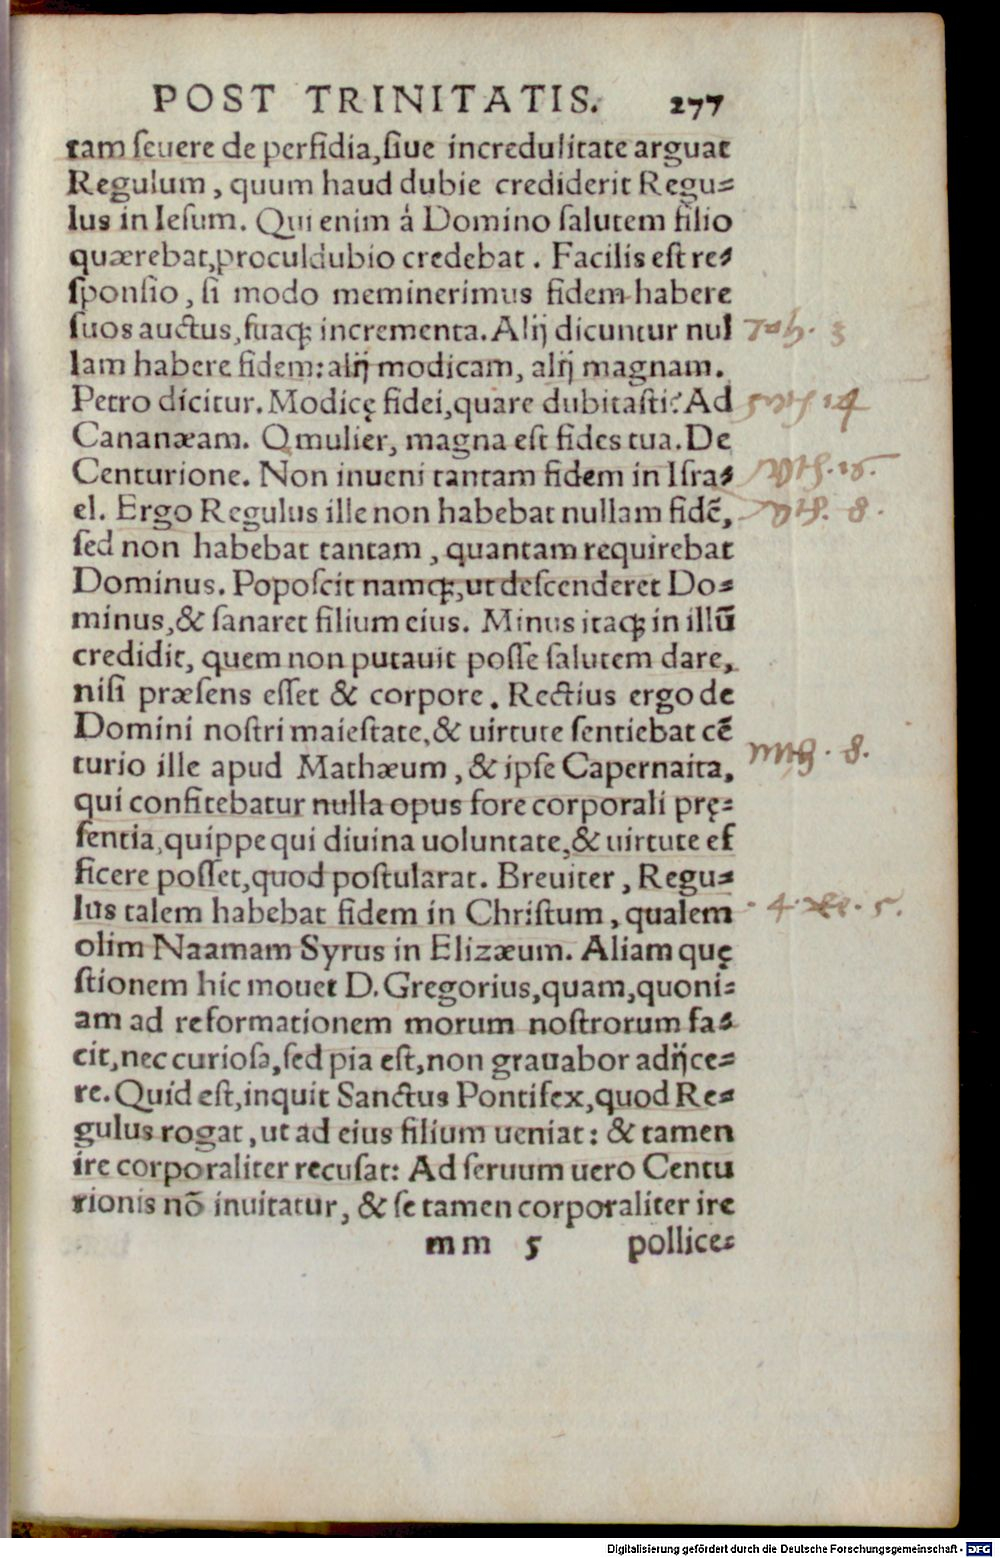 POST TRINITATIS. 277
tam seuere de perfidia, siue incredulitate arguat
Regulum, quum haud dubie crediderit Regu⸗
lus in Iesum. Qui enim á Domino salutem filio
quærebat, proculdubio credebat. Facilis est re⸗
sponsio, si modo meminerimus fidem habere
suos auctus, suaqꝫ incrementa. Alij dicuntur nul
lam habere fidem: alij modicam, alij magnam.
Petro dicitur. Modicę fidei, quare dubitasti? Ad
Cananæam. O mulier, magna est fides tua. De
Centurione. Non inueni tantam fidem in Isra⸗
el. Ergo Regulus ille non habebat nullam fidē,
sed non habebat tantam, quantam requirebat
Dominus. Poposcit namqꝫ, ut descenderet Do⸗
minus, & sanaret filium eius. Minus itaqꝫ in illū
credidit, quem non putauit posse salutem dare,
nisi præsens esset & corpore. Rectius ergo de
Domini nostri maiestate, & uirtute sentiebat cē
turio ille apud Mathæum, & ipse Capernaita,
qui confitebatur nulla opus fore corporali prę⸗
sentia, quippe qui diuina uoluntate, & uirtute ef
ficere posset, quod postularat. Breuiter, Regu⸗
lus talem habebat fidem in Christum, qualem
olim Naamam Syrus in Elizæum. Aliam quę
stionem hic mouet D. Gregorius, quam, quoni⸗
am ad reformationem morum nostrorum fa⸗
cit, nec curiosa, sed pia est, non grauabor adijce⸗
re. Quid est, inquit Sanctus Pontifex, quod Re⸗
gulus rogat, ut ad eius filium ueniat: & tamen
ire corporaliter recusat: Ad seruum uero Centu
rionis nō inuitatur, & se tamen corporaliter ire
mm 5 pollice⸗
3
14
15.
8.
Mth. 8.
4. Re. 5.
Digitalisierung gefördert durch die Deutsche Forschungsgemeinschaft - DFG